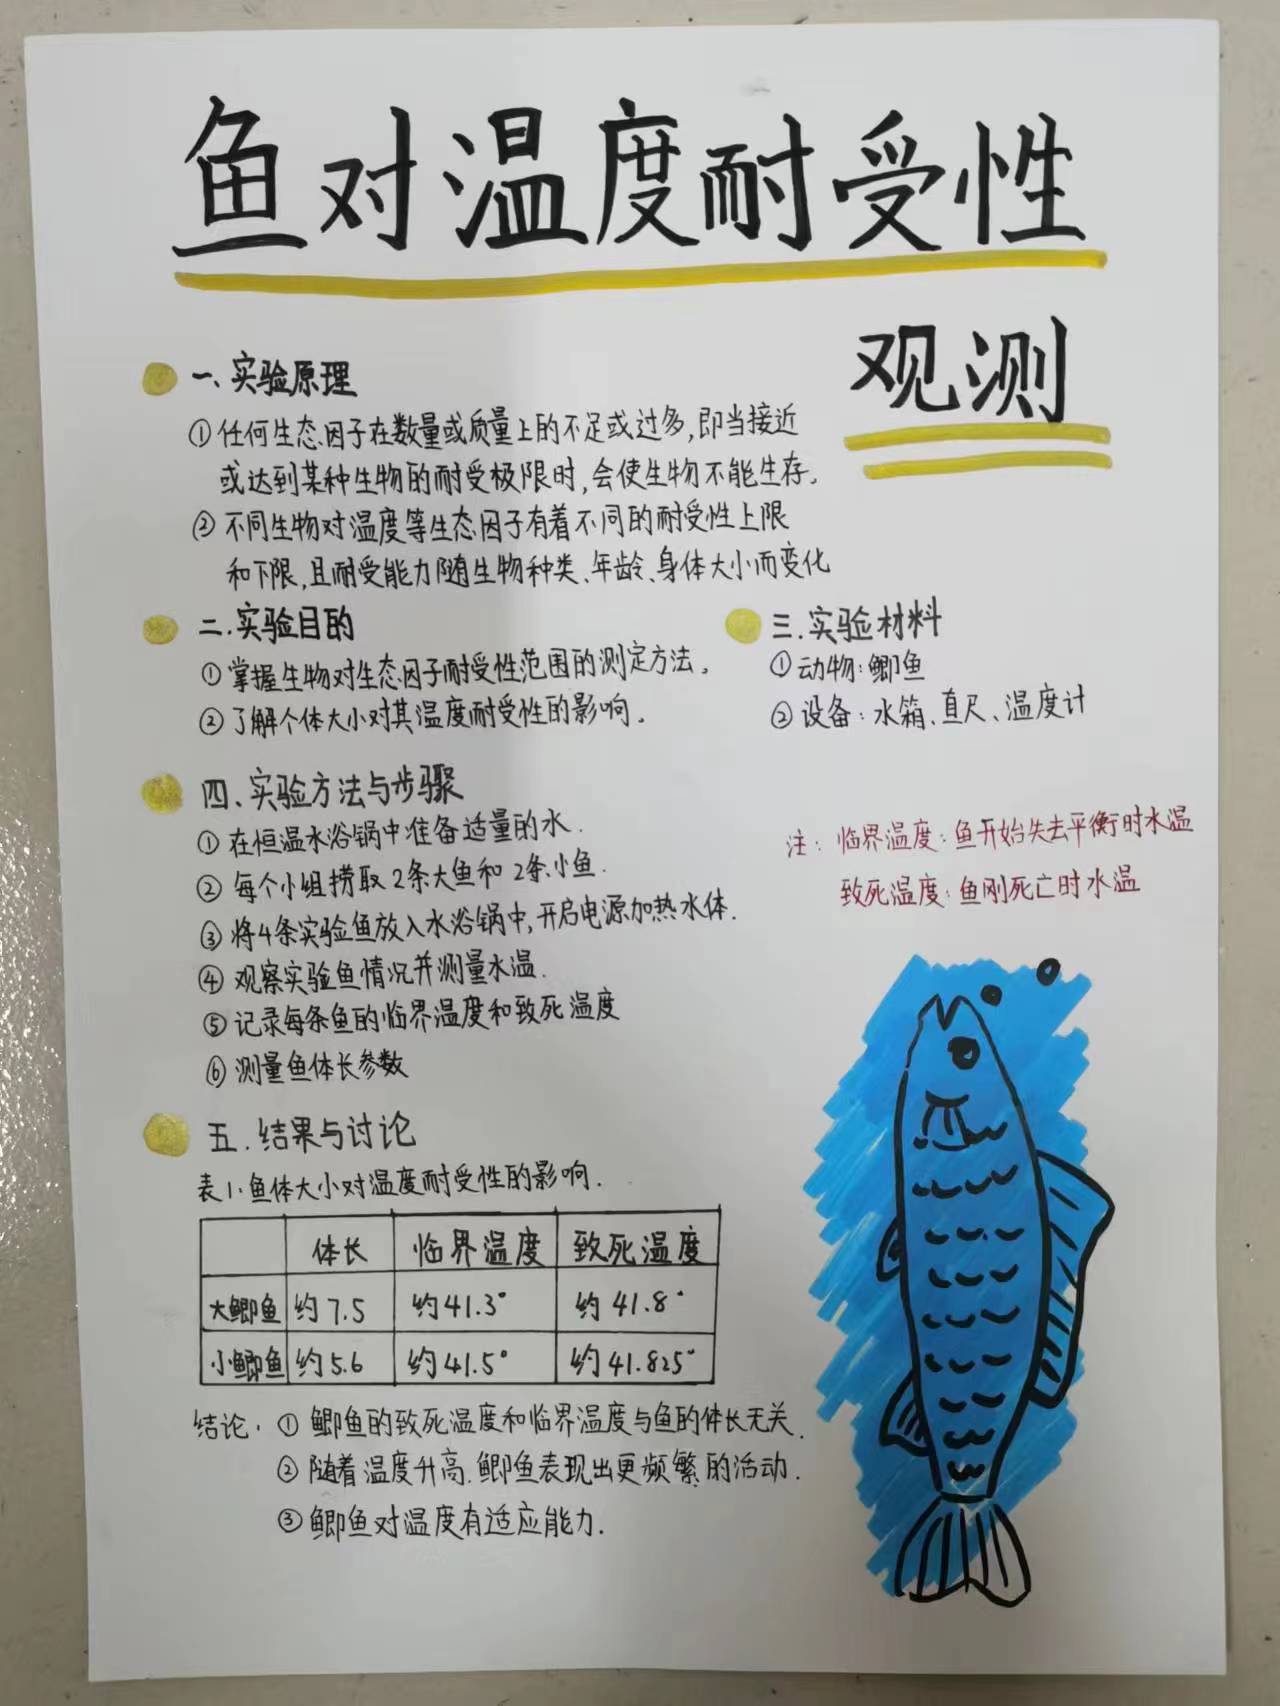 鱼对温度耐受性
观测
一、实验原理
①任何生态因子在数量或质量上的不足或过多,即当接近
或达到某种生物的耐受极限时,会使生物不能生存。
②不同生物对温度等生态因子有着不同的耐受性上限
和下限,且耐受能力随生物种类、年龄、身体大小而变化
二.实验目的
①掌握生物对生态因子耐受性范围的测定方法。
②了解个体大小对其温度耐受性的影响。
三.实验材料
①动物:鲫鱼
②设备:水箱、直尺、温度计
四、实验方法与步骤
①在恒温水浴锅中准备适量的水.
②每个小组捞取2条大鱼和2条小鱼.
③将4条实验鱼放入水浴锅中,开启电源加热水体.
④观察实验鱼情况并测量水温.
⑤记录每条鱼的临界温度和致死温度
⑥测量鱼体长参数
注:临界温度:鱼开始失去平衡时水温
致死温度:鱼刚死亡时水温
五.结果与讨论
表1.鱼体大小对温度耐受性的影响.
体长 临界温度 致死温度
大鲫鱼 约7.5 约41.3° 约41.8°
小鲫鱼 约5.6 约41.5° 约41.825°
结论:①鲫鱼的致死温度和临界温度与鱼的体长无关.
②随着温度升高.鲫鱼表现出更频繁的活动.
③鲫鱼对温度有适应能力.